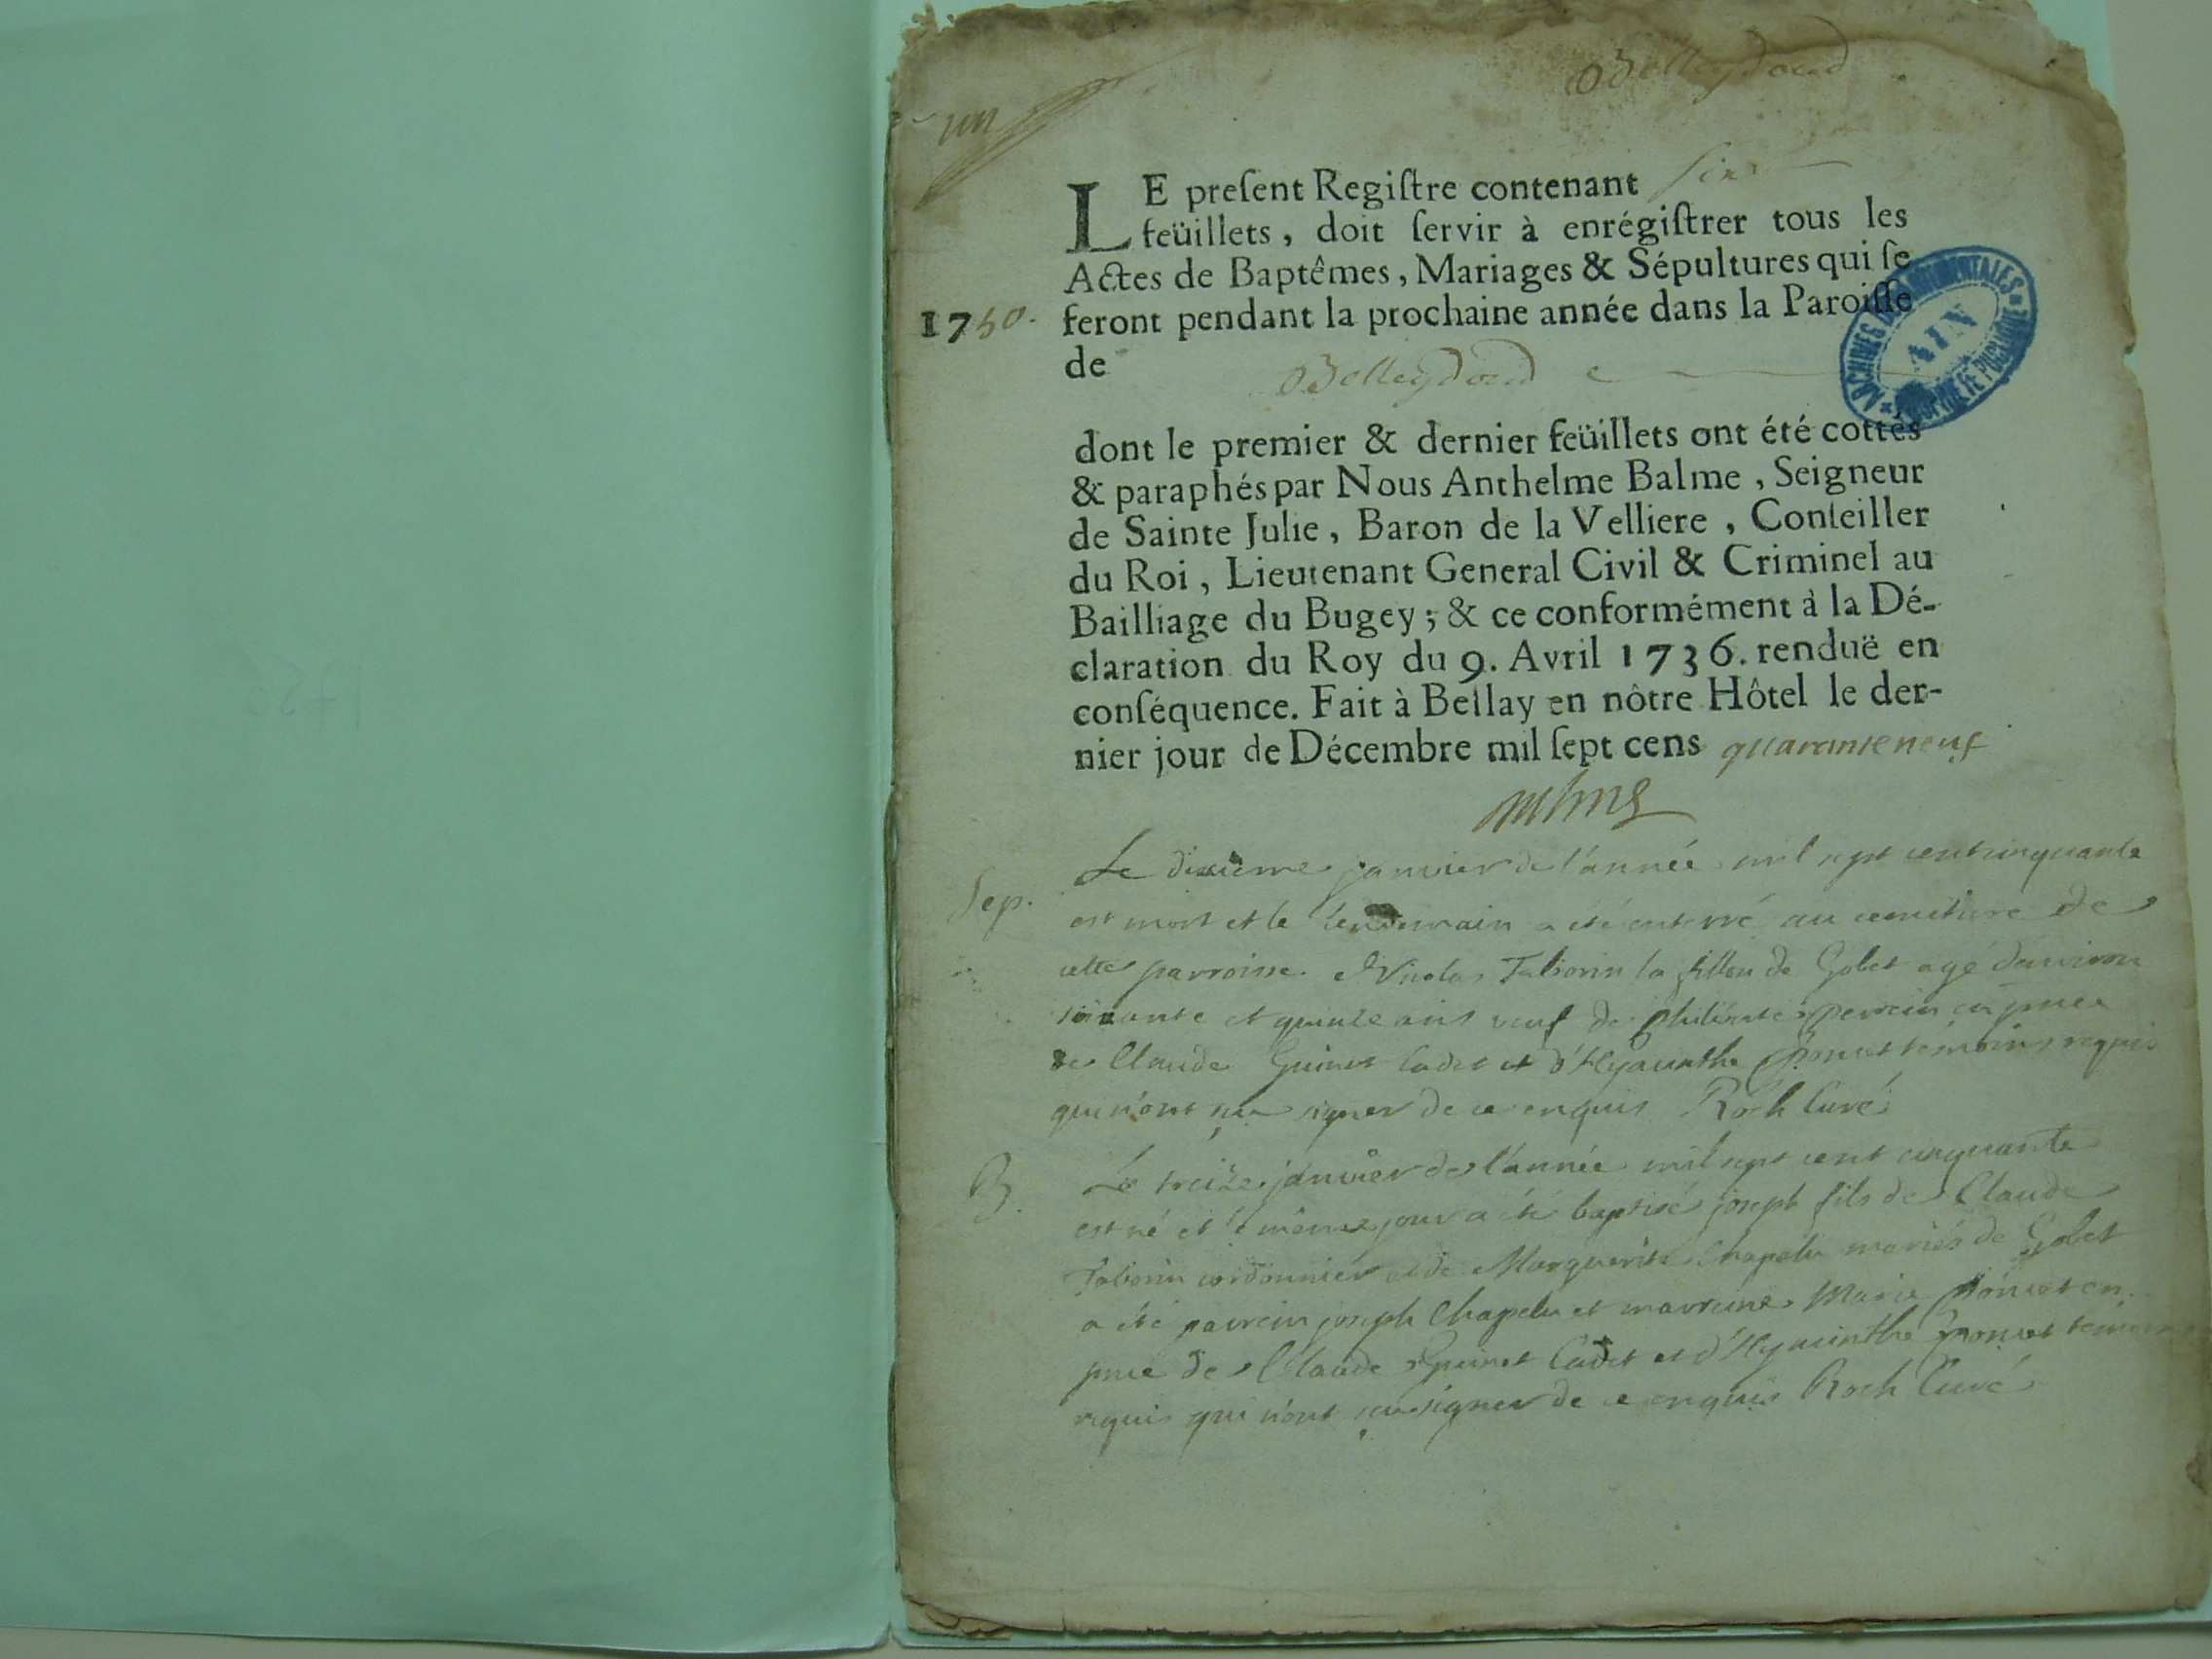 Belleydoux
un
LE preſent Regiſtre contenant ſix
feüillets, doit ſervir à enrégiſtrer tous les
Actes de Baptêmes, Mariages & Sépultures qui ſe
1750. feront pendant la prochaine année dans la Paroiſſe
de Belleydoux
ARCHIVES DEPARTEMENTALES
AIN
dont le premier & dernier feüillets ont été cottés
& paraphés par Nous Anthelme Balme, Seigneur
de Sainte Julie, Baron de la Velliere, Conſeiller
du Roi, Lieutenant General Civil & Criminel au
Bailliage du Bugey; & ce conformément à la Dé-
claration du Roy du 9. Avril 1736. renduë en
conſéquence. Fait à Bellay en nôtre Hôtel le der-
nier jour de Décembre mil ſept cens quarante neuf
Balme
Sep. Le dixieme janvier de l'année mil sept cent cinquante
est mort et le lendemain a été enterré au cemetiere de
cette parroisse Nicolas Tabourin de Golet agé d'environ
soixante et quinze ans veuf de Philiberte Perrein en pnce
de Claude Guinet Cadet et d'Hyacinthe Poncet temoins requis
qui n'ont sçu signer de ce enquis Roch Curé
B. Le treize janvier de l'année mil sept cent cinquante
est né et le même jour a été baptisé joseph fils de Claude
cordonnier et de Marguerite Chapelu mariés de Golet
a été parrein joseph Chapelu et marreine Marie Poncet en
pnce de Claude Guinet Cadet et d'Hyacinthe Poncet temoins
requis qui n'ont sçu signer de ce enquis Roch Curé